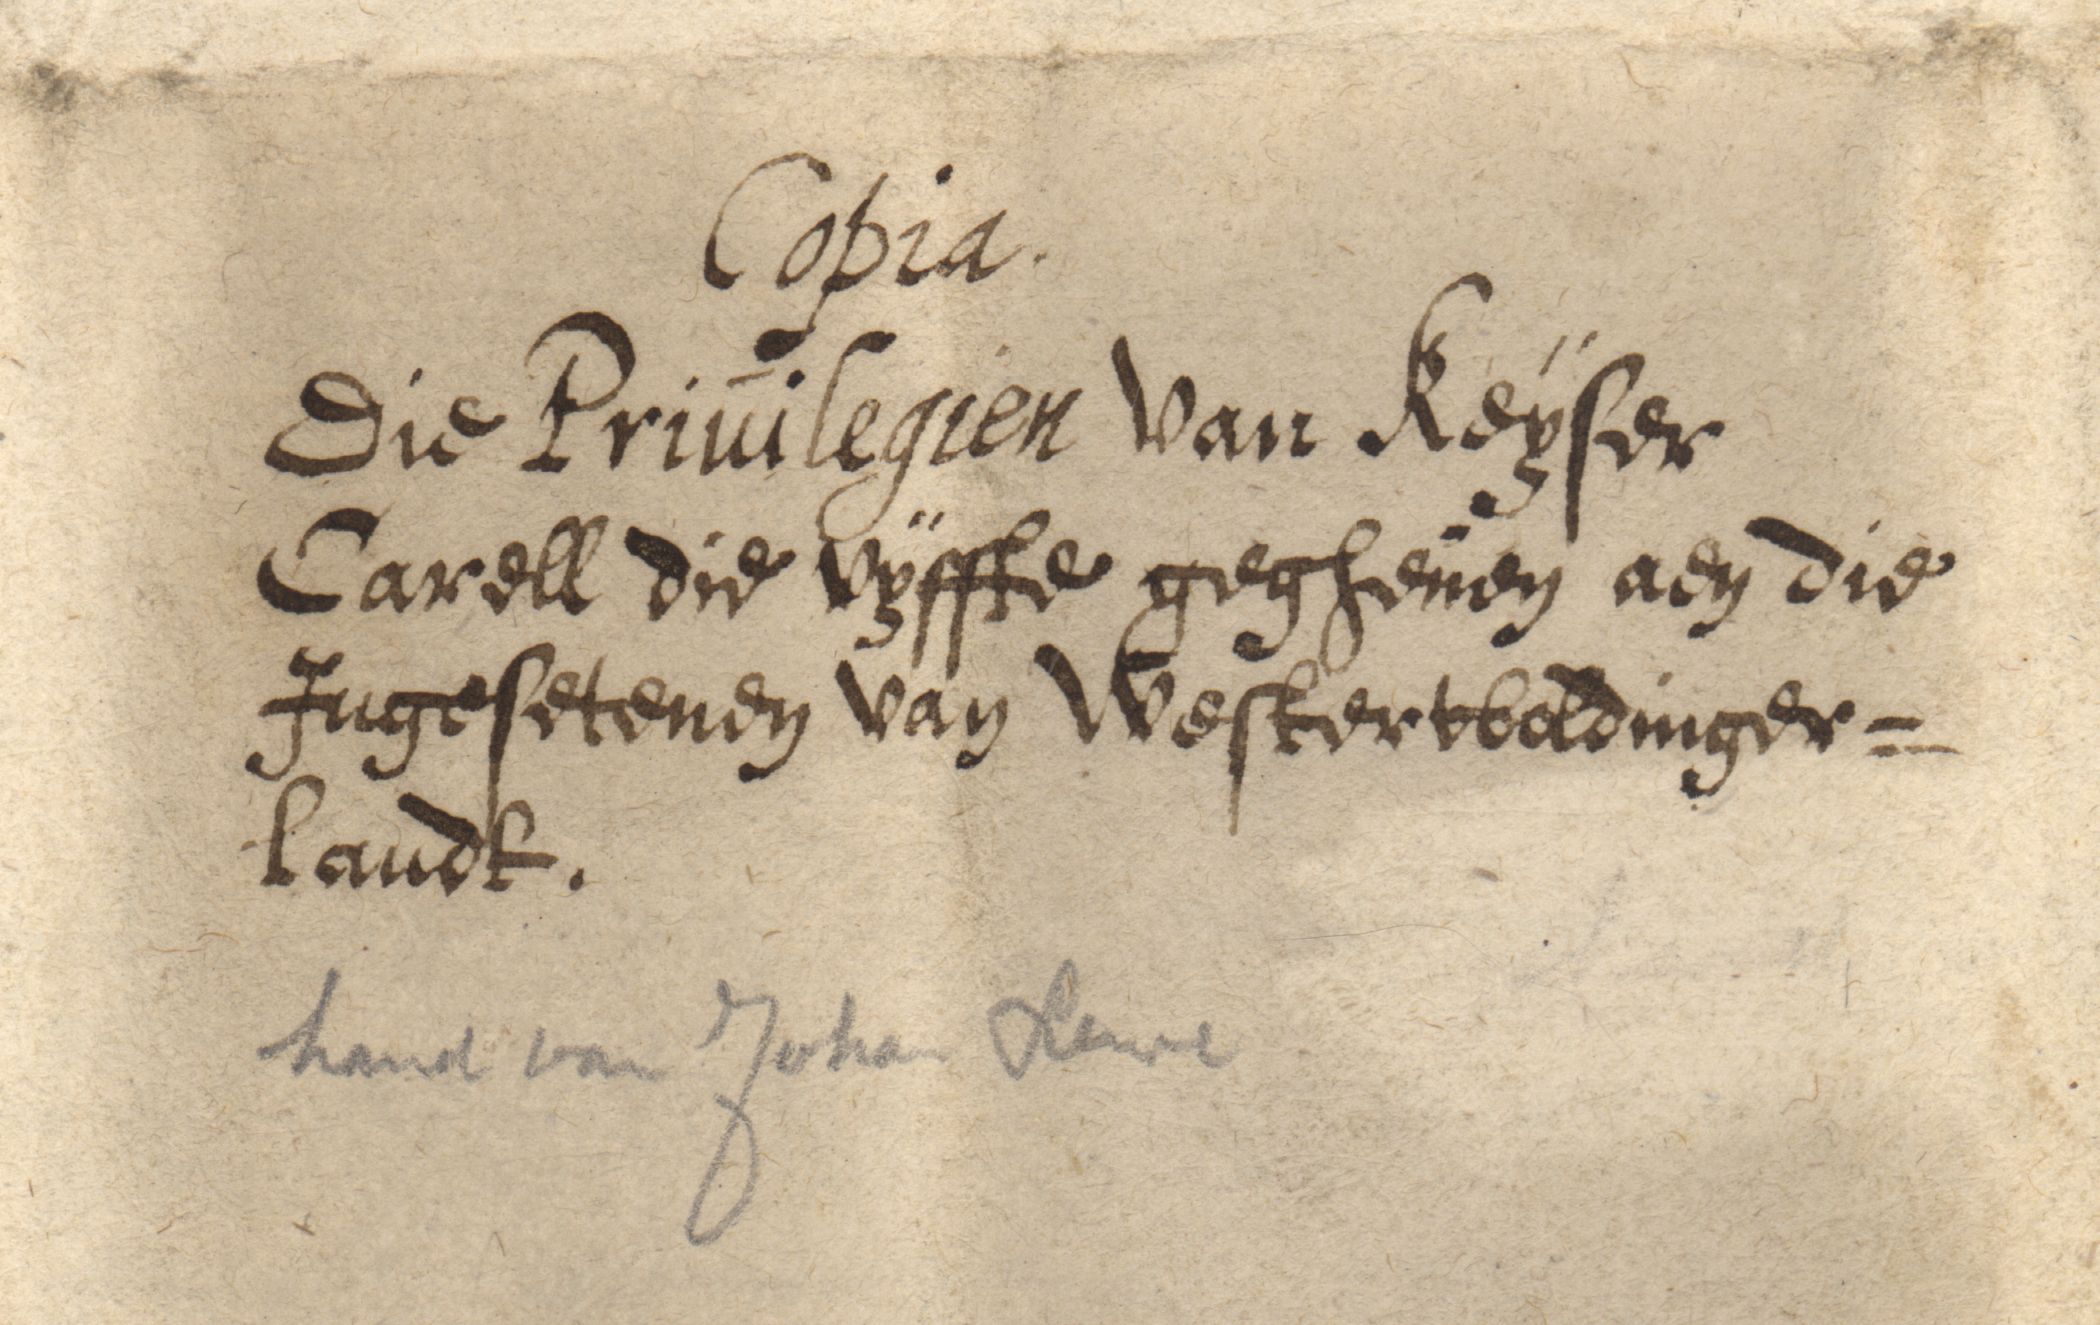 Copia.
Die Priuilegien van Keÿser
Carell die vÿffte gegheuen aen die
Ingesetenen van Westerwoldinger=
landt.
hand van Johan